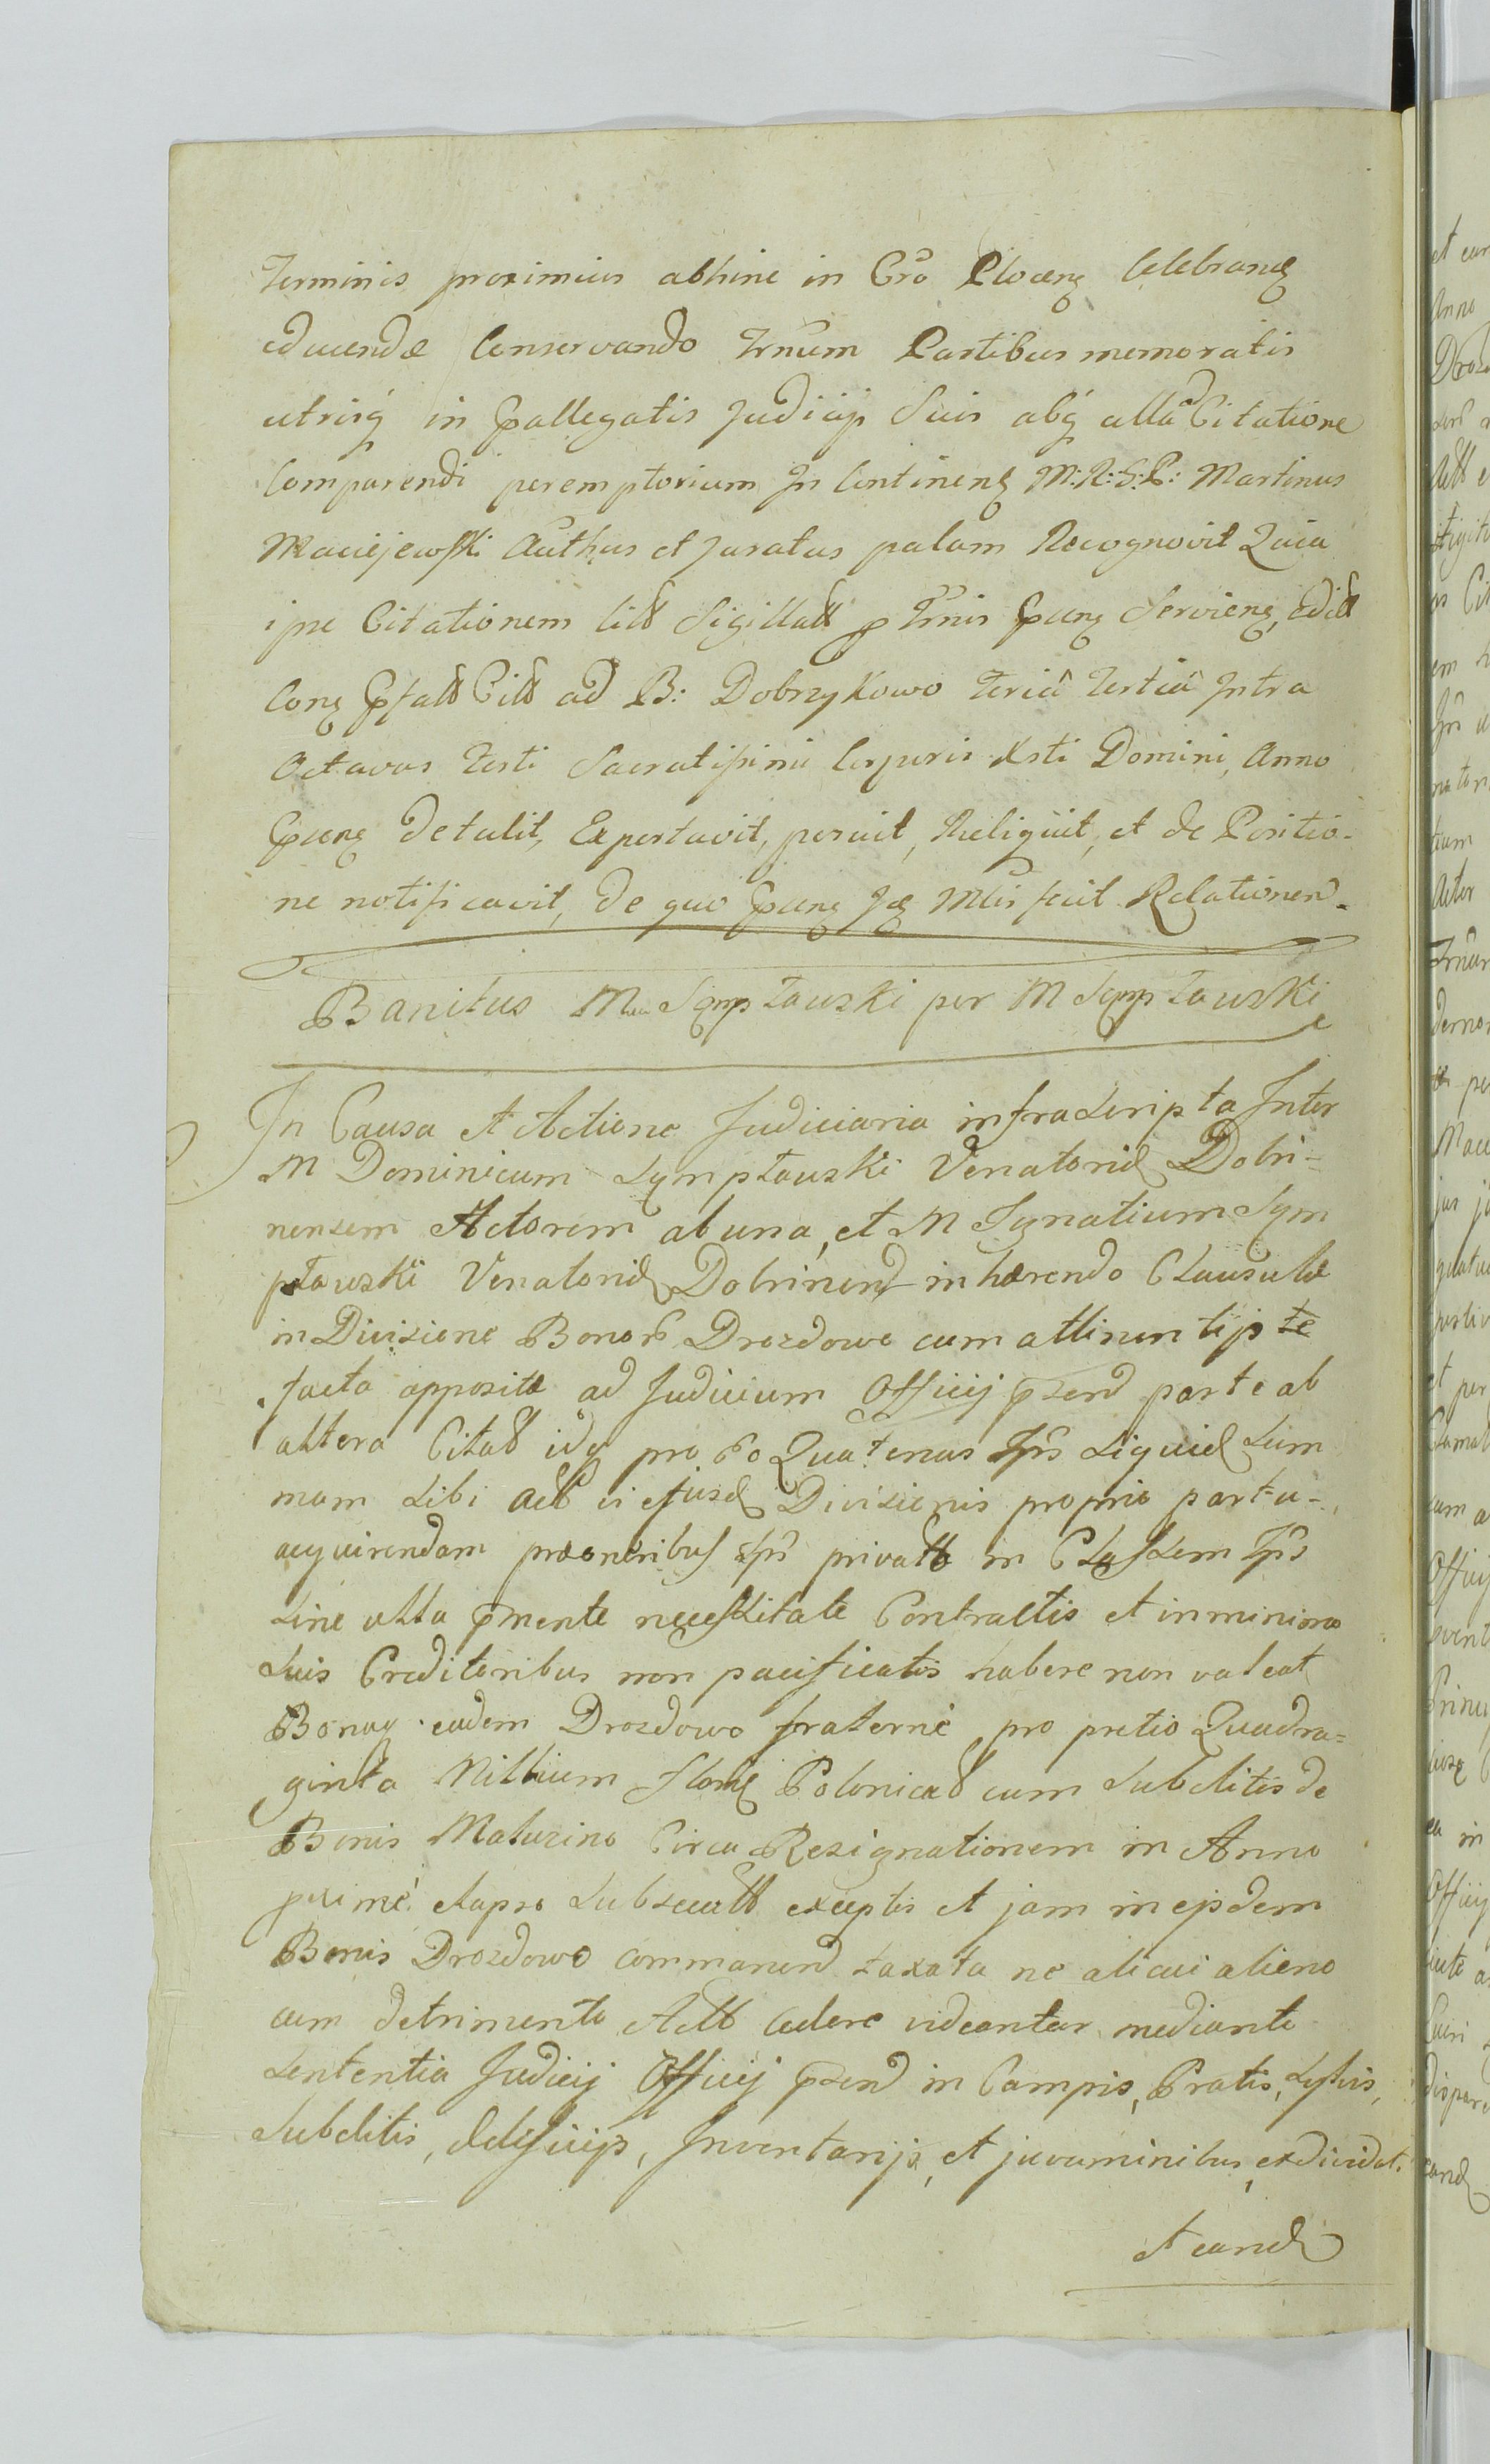 Terminis proximius abhinc in Cro Plocen celebran
educendae Conservando Trnum Partibus memoratis
utrisq in pallegatis Judicijs Suis absq ulla Citatione
Comparendi peremptorium In Continen M: R: S: P: Martinus
Maciejewski Authus et Juratus palam Recognovit Quia
ipse Citationem litt Sigillatt p Trnis pnn Servien, Edit
Con Citt ad B: Dobrzykowo Feria Tertia Intra
Octavas Festi Sacratissimi Corporis Xsti Domini, Anno
detulit, Exportavit, posuit, Reliquit, et de Positio-
ne notificavit, de quo Mlis fecit Relationem.
Banitus M Sęmpławski per M Sęmpławski
In Causa et Actione Judiciaria infrascripta Inter
M Dominicum Sympławski Venatorid Dobri-
nensem Actorem ab una, et M Ignatium Sym
pławski Venatorid Dobrinen inhaerendo Clausulae
in Divisione Bonor Drozdowo cum attinentijs te
facta appositae ad Judicium Officij psen parte ab
altera Citat idq pro eo Quatenus Ips Liquid Sum
mam Sibi act vi ejusd Divisionis proprio partu-
acquirendam prae oneribus Ips privatt in Classem Ips
sine ulla pmente necessitate Contractis et in minimo
Suis Creditoribus non pacificatis habere non valeat
Bonaq eadem Drozdowo fraterne pro pretio Quadra=
ginta Millium flor Polonical cum Subditis de
Bonis Maluzino Circa Resignationem in Anno
proxime elapso Subsecutt exceptis et jam in ejsdem
Bonis Drozdowo commanen taxata ne alicui alieno
cum detrimento Actt cedere videantur mediante
Sententia Judicij Officij psen in Campis, Pratis, Sylvis,
Subditis, Aedificijs, Inventarijs, et juvaminibus, exdividat.
et eand